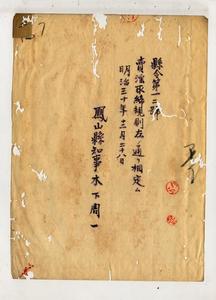 縣令第一三號
賣淫取締規則左ノ通リ相定ム
明治三十年十二月二十八日
鳳山縣知事木下周一